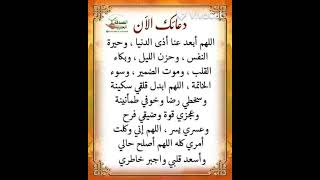 دعائك الآن
اللهم أبعد عنا أذى الدنيا ، وحيرة
النفس ، وحزن الليل ، وبكاء
القلب ، وموت الضمير ، وسوء
الخاتمة ، اللهم ابدل قلقي سكينة
وسخطي رضا وخوفي طمأنينة
وعجزي قوة وضيقي فرح
وعسري يسر ، اللهم إني وكلت
أمري كله اللهم أصلح حالي
وأسعد قلبي واجبر خاطري